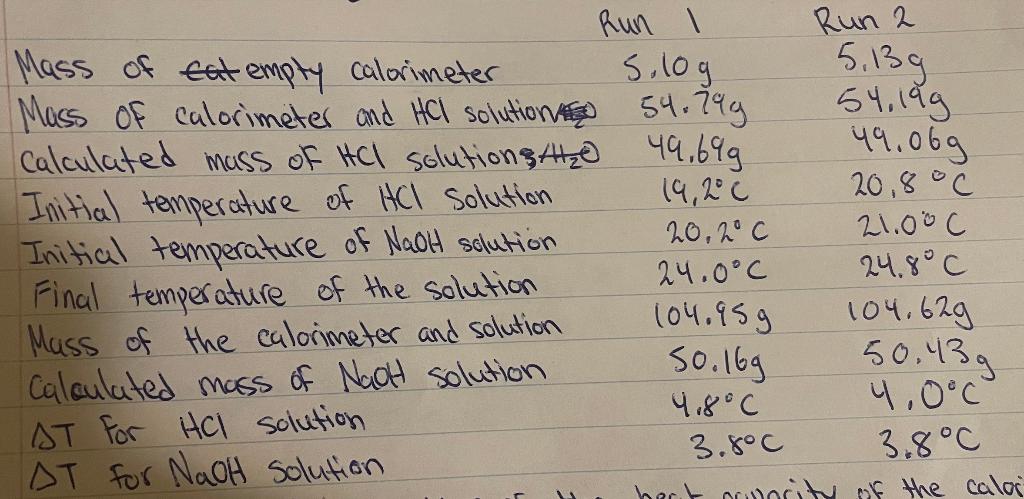 Run 1 Run 2
Mass of empty calorimeter 5.10g 5.13g
Mass of calorimeter and HCl solution 54.79g 54.19g
Calculated mass of HCl solution 49.69g 49.06g
Initial temperature of HCl Solution 19.2°C 20.8°C
Initial temperature of NaOH solution 20.2°C 21.0°C
Final temperature of the solution 24.0°C 24.8°C
Mass of the calorimeter and solution 104.95g 104.62g
Calculated mass of NaOH solution 50.16g 50.43g
ΔT for HCl solution 4.8°C 4.0°C
ΔT for NaOH solution 3.8°C 3.8°C
heat capacity of the